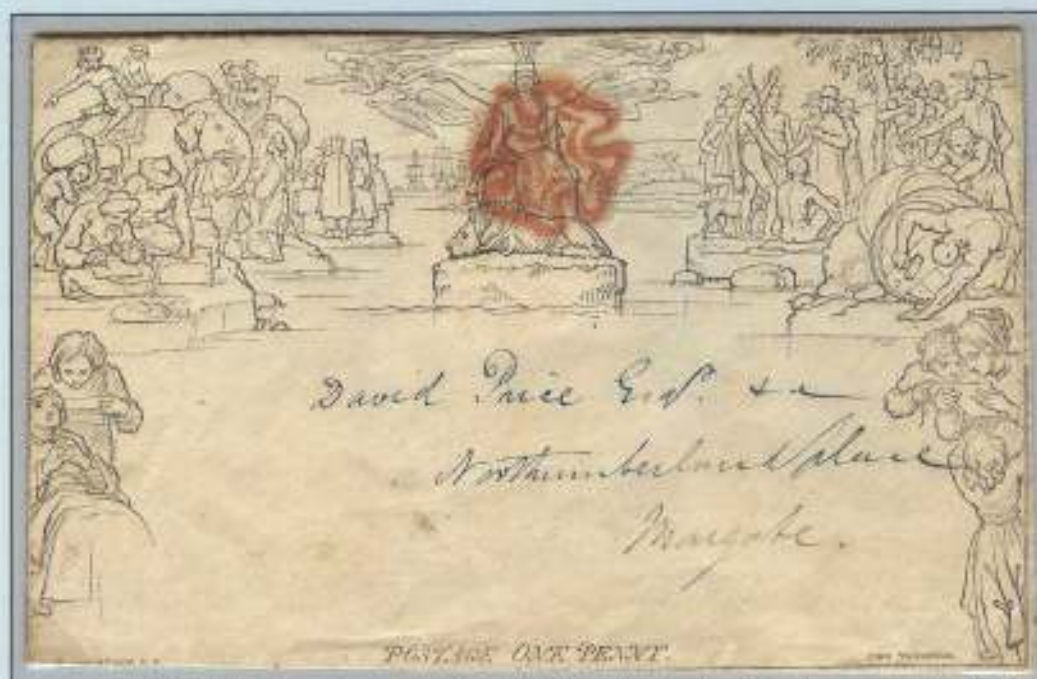 David Price Esqr. &c
Northumberland Place
Margate.
POSTAGE ONE PENNY.